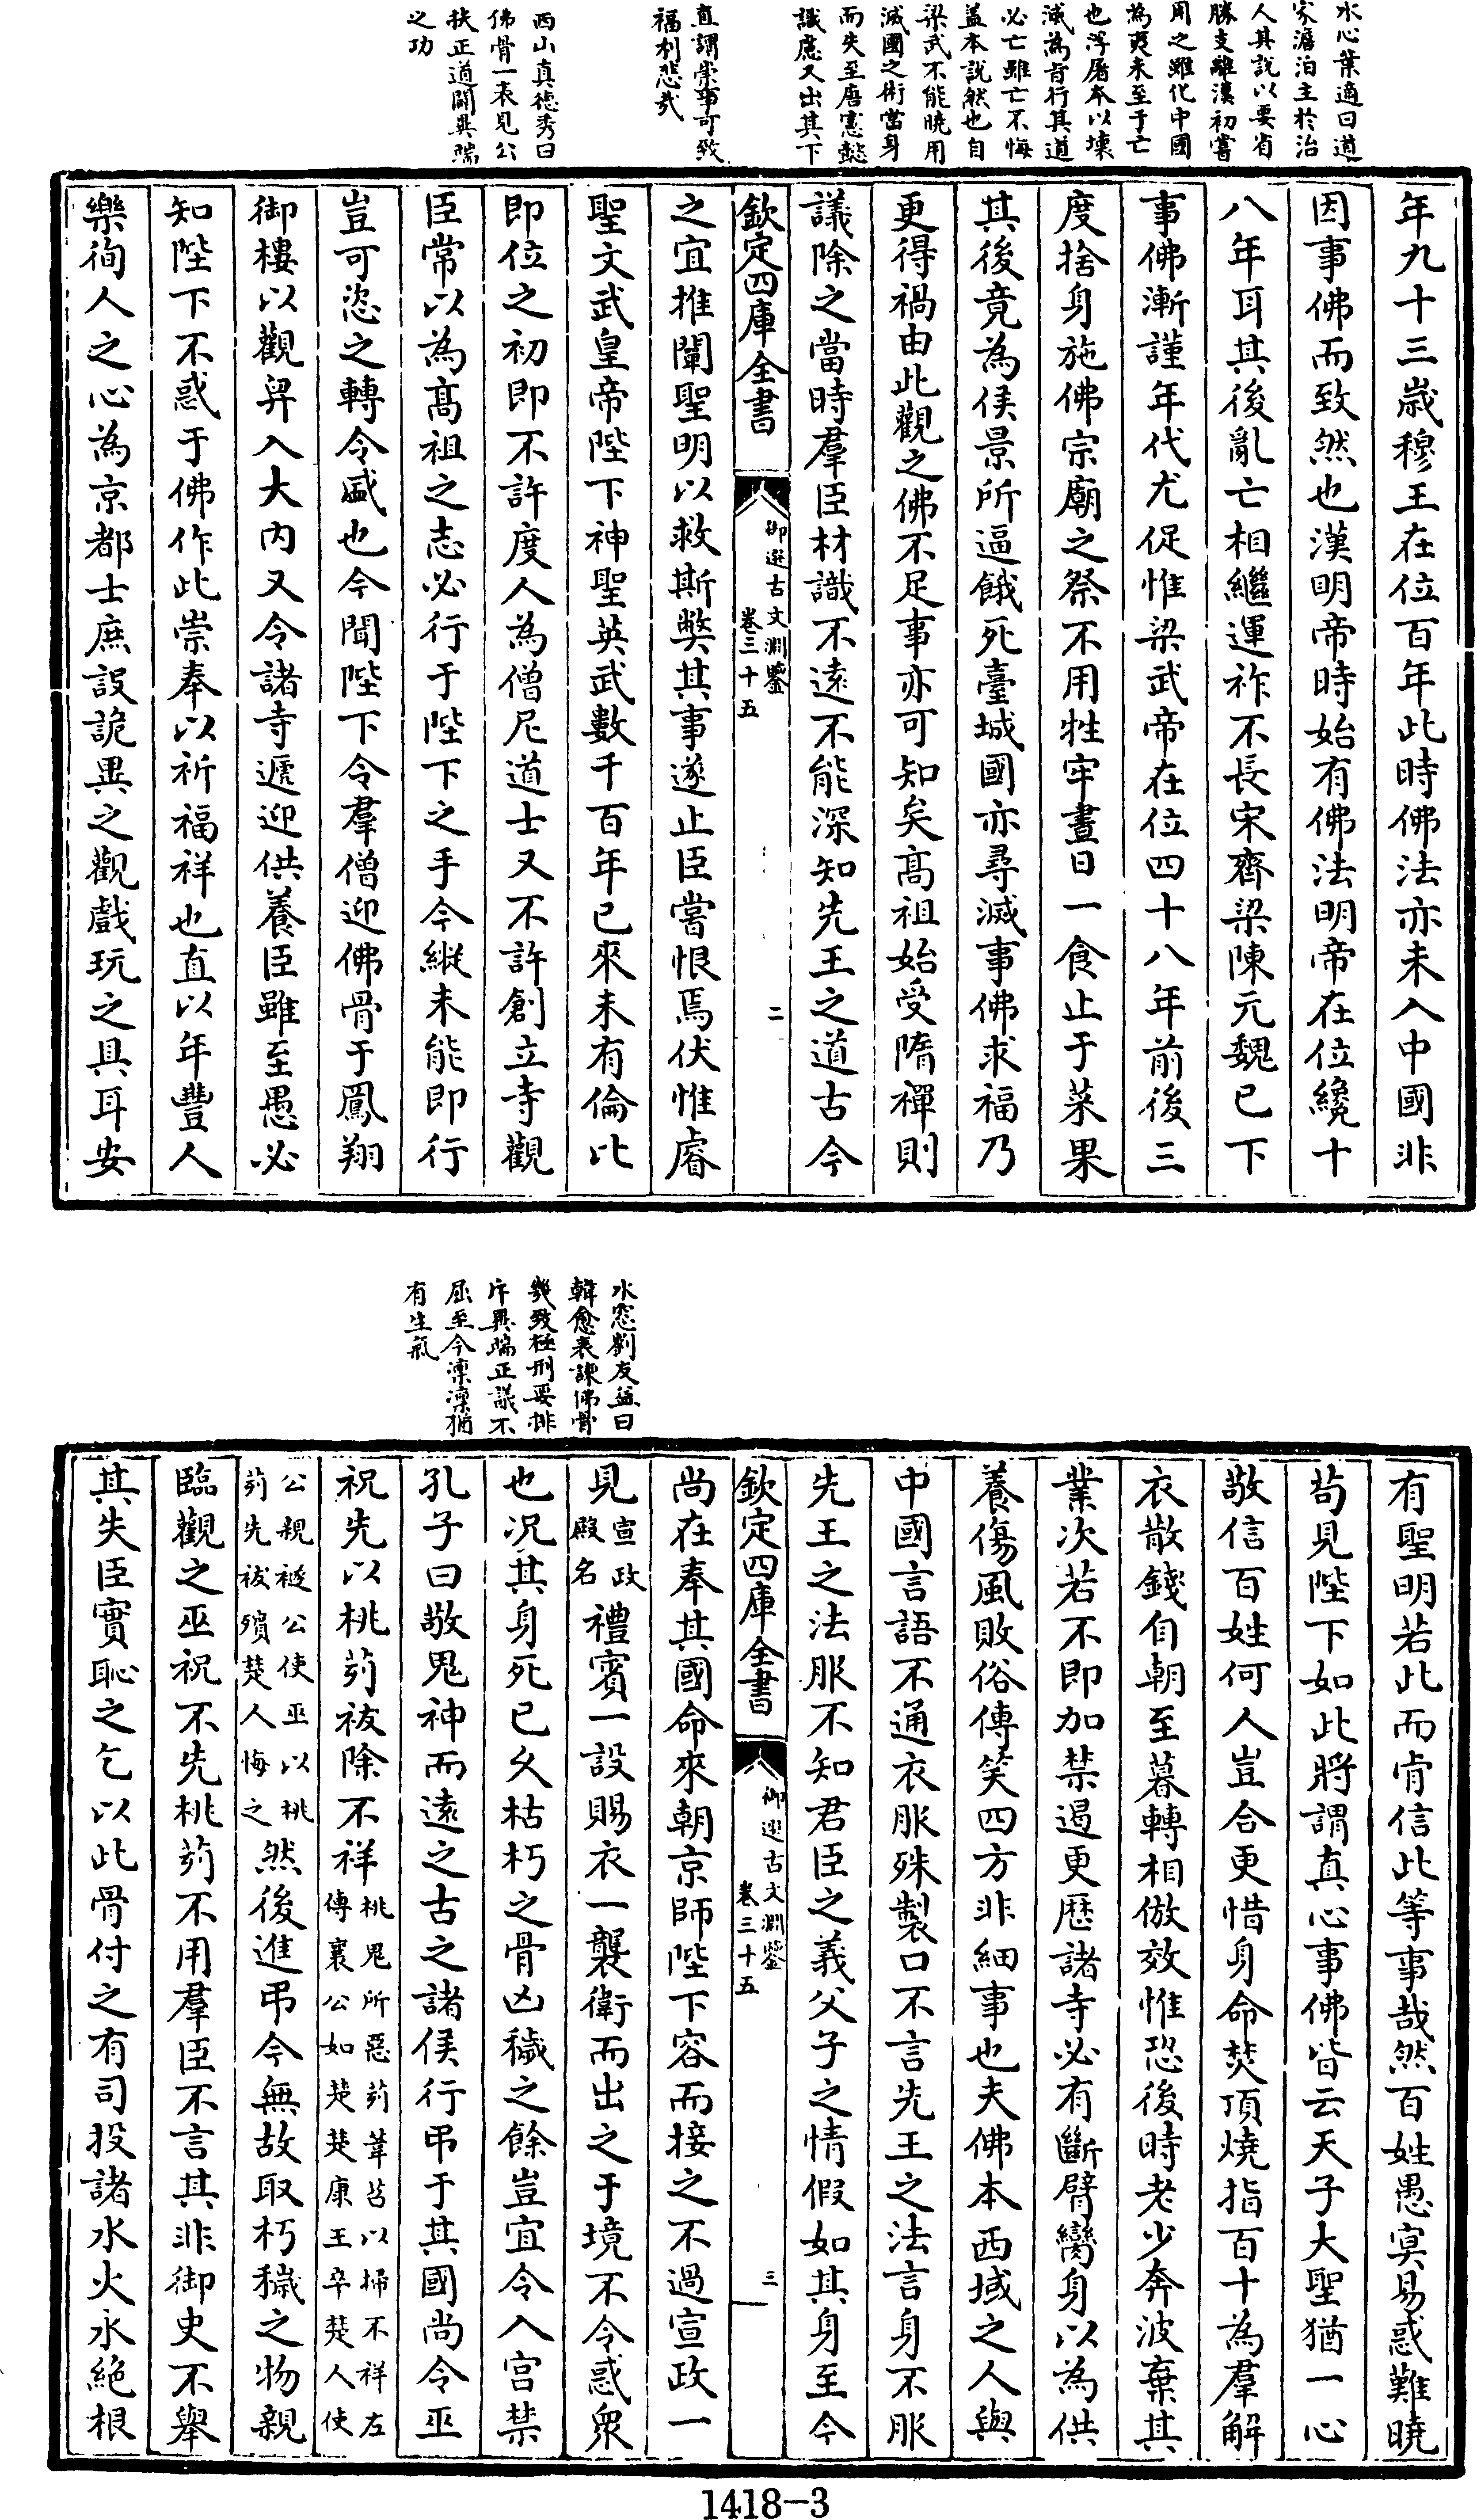 水心葉適曰道
家澹泊主於治
人其說以要省
勝支離漢初嘗
用之雖化中國
為夷未至于亡
也浮屠本以壞
滅為旨行其道
必亡雖亡不悔
蓋本說然也自
梁武不能曉用
滅國之術當身
而失至唐憲懿
識慮又出其下
直謂崇事可致
福利悲哉
西山真德秀曰
佛骨一表見公
扶正道闢異端
之功
年九十三歲穆王在位百年此時佛法亦未入中國非
因事佛而致然也漢明帝時始有佛法明帝在位纔十
八年耳其後亂亡相繼運祚不長宋齊梁陳元魏已下
事佛漸謹年代尤促惟梁武帝在位四十八年前後三
度捨身施佛宗廟之祭不用牲牢晝日一食止于菜果
其後竟為侯景所逼餓死臺城國亦尋滅事佛求福乃
更得禍由此觀之佛不足事亦可知矣高祖始受隋禪則
議除之當時羣臣材識不遠不能深知先王之道古今
欽定四庫全書
御選古文淵鑒
卷三十五
二
之宜推闡聖明以救斯弊其事遂止臣嘗恨焉伏惟睿
聖文武皇帝陛下神聖英武數千百年已來未有倫比
即位之初即不許度人為僧尼道士又不許創立寺觀
臣常以為高祖之志必行于陛下之手今縱未能即行
豈可恣之轉令盛也今聞陛下令羣僧迎佛骨于鳳翔
御樓以觀舁入大內又令諸寺遞迎供養臣雖至愚必
知陛下不惑于佛作此崇奉以祈福祥也直以年豐人
樂徇人之心為京都士庶設詭異之觀戲玩之具耳安
水窓劉友益曰
韓愈表諫佛骨
幾致極刑要排
斥異端正議不
屈至今凛凛猶
有生氣
有聖明若此而肯信此等事哉然百姓愚冥易惑難曉
茍見陛下如此將謂真心事佛皆云天子大聖猶一心
敬信百姓何人豈合更惜身命焚頂燒指百十為羣解
衣散錢自朝至暮轉相倣效惟恐後時老少奔波棄其
業次若不即加禁遏更歷諸寺必有斷臂臠身以為供
養傷風敗俗傳笑四方非細事也夫佛本西域之人與
中國言語不通衣服殊製口不言先王之法言身不服
先王之法服不知君臣之義父子之情假如其身至今
欽定四庫全書
御選古文淵鑒
卷三十五
三
尚在奉其國命來朝京師陛下容而接之不過宣政一
見宣政殿名禮賓一設賜衣一襲衛而出之于境不令惑衆
也况其身死已乆枯朽之骨凶穢之餘豈宜令入宫禁
孔子曰敬鬼神而遠之古之諸侯行弔于其國尚令巫
祝先以桃茢祓除不祥桃鬼所惡茢萑苕以掃不祥左傳襄公如楚楚康王卒楚人使
公親襚公使巫以桃茢先祓殯楚人悔之然後進弔今無故取朽穢之物親
臨觀之巫祝不先桃茢不用羣臣不言其非御史不舉
其失臣實恥之乞以此骨付之有司投諸水火永絕根
1418-3